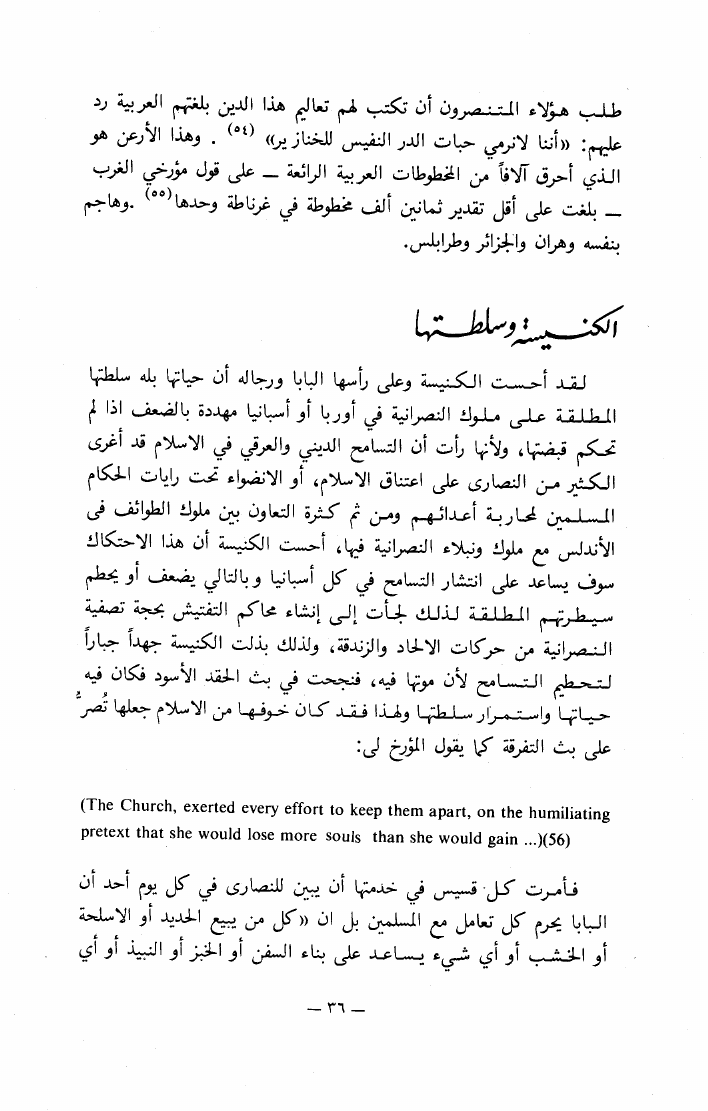 طلب هؤلاء المتنصرون أن تكتب لهم تعاليم هذا الدين بلغتهم العربية رد
عليهم: «أننا لانرمي حبات الدر النفيس للخنازير» (٥٤) . وهذا الأرعن هو
الذي أحرق آلافاً من المخطوطات العربية الرائعة — على قول مؤرخي الغرب
— بلغت على أقل تقدير ثمانين ألف مخطوطة في غرناطة وحدها(٥٥) .وهاجم
بنفسه وهران والجزائر وطرابلس.
الكنيسة وسلطتها
لقد أحست الكنيسة وعلى رأسها البابا ورجاله أن حياتها بله سلطتها
المطلقة على ملوك النصرانية في أوربا أو أسبانيا مهددة بالضعف اذا لم
تحكم قبضتها، ولأنها رأت أن التسامح الديني والعرقي في الاسلام قد أغرى
الكثير من النصارى على اعتناق الاسلام، أو الانضواء تحت رايات الحكام
المسلمين لمحاربة أعدائهم ومن ثم كثرة التعاون بين ملوك الطوائف فى
الأندلس مع ملوك ونبلاء النصرانية فيها، أحست الكنيسة أن هذا الاحتكاك
سوف يساعد على انتشار التسامح في كل أسبانيا وبالتالي يضعف أو يحطم
سيطرتهم المطلقة لذلك لجأت إلى إنشاء محاكم التفتيش بحجة تصفية
النصرانية من حركات الالحاد والزندقة، ولذلك بذلت الكنيسة جهداً جباراً
لتحطيم التسامح لأن موتها فيه، فنجحت في بث الحقد الأسود فكان فيه
حياتها واستمرار سلطتها ولهذا فقد كان خوفها من الاسلام جعلها تُصرُّ
على بث التفرقة كما يقول المؤرخ لى:
(The Church, exerted every effort to keep them apart, on the humiliating
pretext that she would lose more souls than she would gain ...)(56)
فأمرت كل قسيس في خدمتها أن يبين للنصارى في كل يوم أحد أن
البابا يحرم كل تعامل مع المسلمين بل ان «كل من يبيع الحديد أو الاسلحة
أو الخشب أو أي شيء يساعد على بناء السفن أو الخبز أو النبيذ أو أي
— ٣٦ —